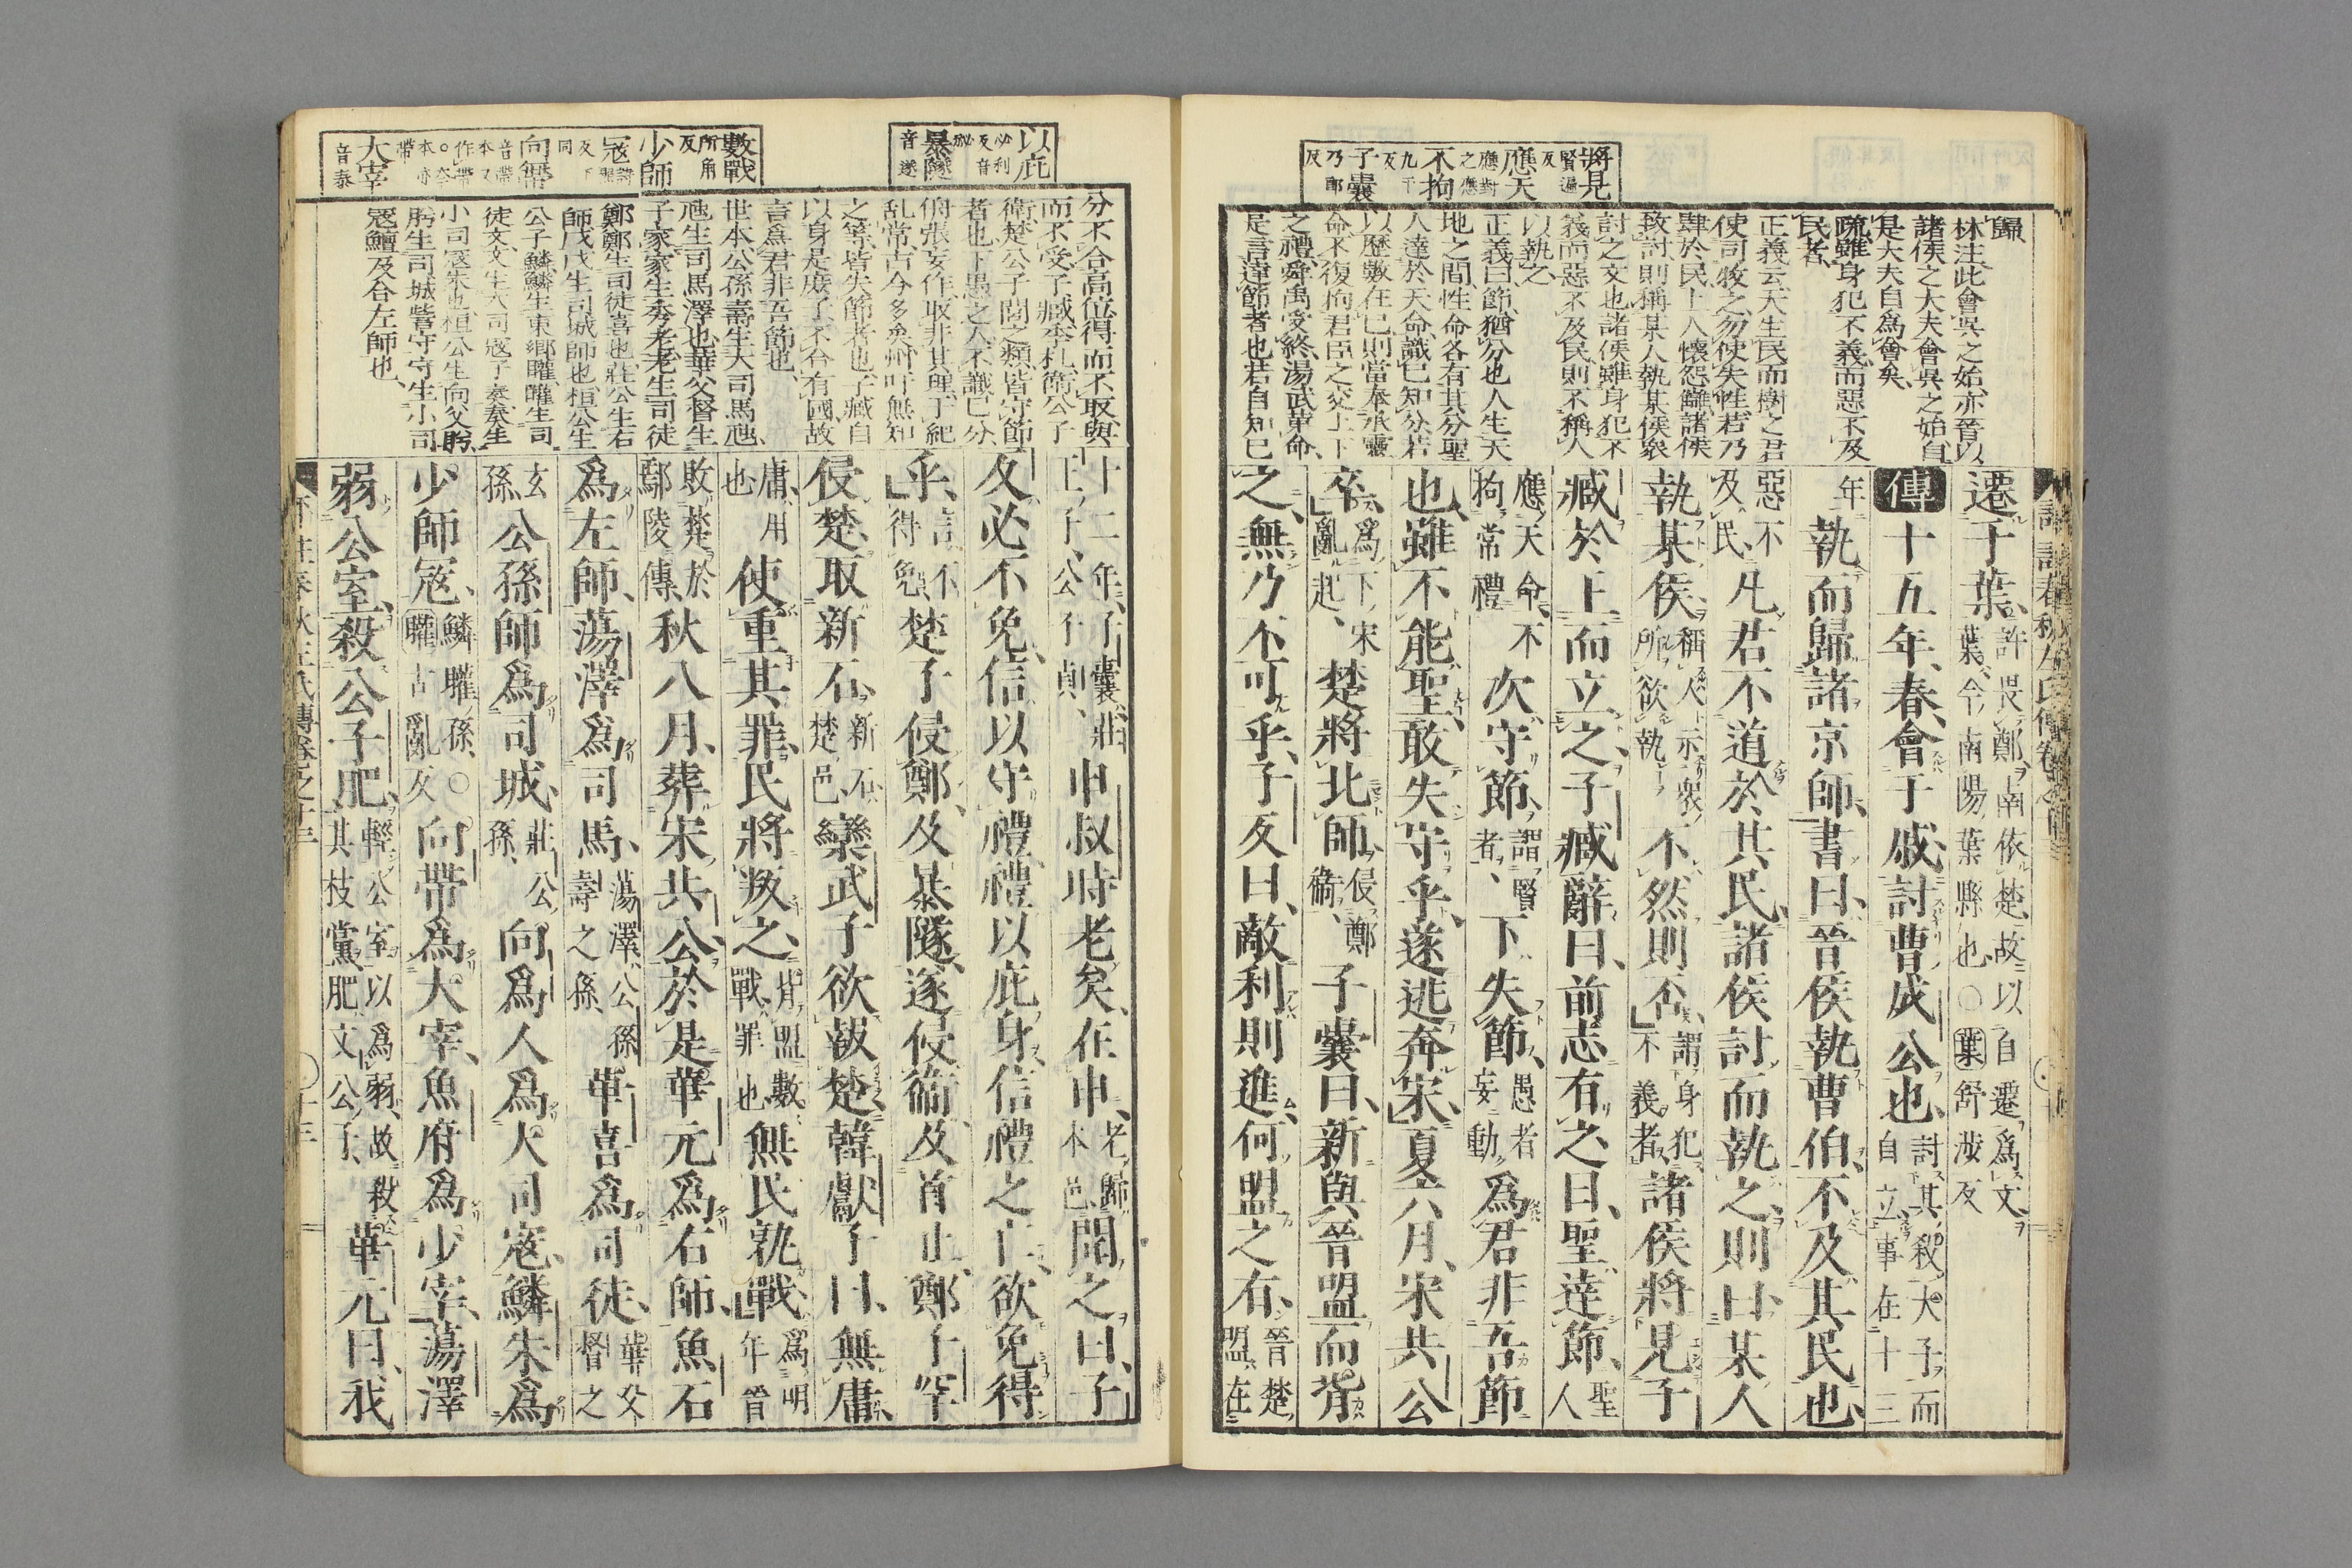 將見
賢遍
反
應天
應對
之應
不拘
九于
反
子囊
乃郎
反
歸
林注此會吳之始亦晉以
諸侯之大夫會吳之始自
是大夫自為會矣
疏雖身犯不義而惡不及
民者
正義云天生民而樹之君
使司牧之勿使失性若乃
肆於民上人懷怨讎諸侯
致討則稱某人執某侯衆
討之文也諸侯雖身犯不
義而惡不及民則不稱人
以執之
正義曰節猶分也人生天
地之間性命各有其分聖
人達於天命識己知分若
以歷數在己則當奉承靈
命不復拘君臣之交上下
之禮舜禹受終湯武革命
是言達節者也若自知己
遷于葉許畏鄭南依楚故以自遷為文
葉今南陽葉縣也○葉舒涉反
傳十五年春會于戚討曹成公也討其殺大子而
自立事在十三
年執而歸諸京師書曰晉侯執曹伯不及其民也
惡不
及民凡君不道於其民諸侯討而執之則曰某人
執某侯稱人示衆
所欲執不然則否謂身犯
不義者諸侯將見子
臧於王而立之子臧辭曰前志有之曰聖達節聖
人
應天命不
拘常禮次守節謂賢
者下失節愚者
妄動為君非吾節
也雖不能聖敢失守乎遂逃奔宋夏六月宋共公
卒為下宋
亂起楚將北師侵鄭
衞子囊曰新與晉盟而背
之無乃不可乎子反曰敵利則進何盟之有晉楚
盟在
以庇
必利
反音
祕
暴隧
音遂
數戰
所角
反
少師
寇
向帶
大宰
音泰
分不合高位得而不取與
而不受子臧季札衞公子
郢楚公子閭之類皆守節
者也下愚之人不識己分
俯張妄作取非其理干紀
乱常古今多矣州吁無知
之等皆失節者也子臧自
以身是庶子不合有國故
言為君非吾節也
世本公孫壽生大司馬虺
虺生司馬澤也華父督生
子家家生季老老生司徒
鄭鄭生司徒喜也莊公生右
師戊戊生司城師也桓公生
公子鱗鱗生東鄉矔矔生司
徒文文生大司寇子奏奏生
小司寇朱也桓公生向父肸
肸生司城訾守守生小司
寇鱣及合左師也
十二年子囊莊
王子公子貞申叔時老矣在申老歸
本邑聞之曰子
反必不免信以守禮禮以庇身信禮之亡欲免得
乎言不
得免楚子侵鄭及暴隧遂侵衞及首止鄭子罕
侵楚取新石新石
楚邑欒武子欲報楚韓獻子曰無庸
庸用
也使重其罪民將叛之背盟數
戰罪也無民孰戰為明
年晉
敗楚於
鄢陵傳秋八月葬宋共公於是華元為右師魚石
為左師蕩澤為司馬蕩澤公孫
壽之孫華喜為司徒華父
督之
玄
孫公孫師為司城莊公
孫向為人為大司寇鱗朱為
少師寇鱗矔孫○
矔古亂反向帶為大宰魚府為少宰蕩澤
弱公室殺公子肥輕公室以為弱故殺
其枝黨肥文公子華元曰我